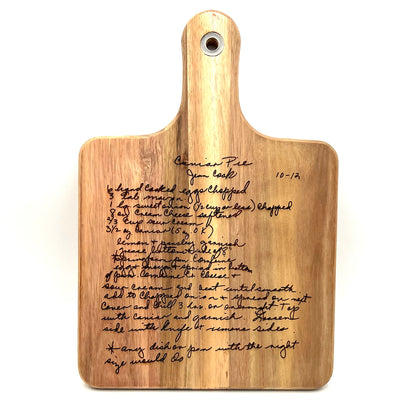 Caviar Pie
Jean Cook 10-12
6 hard cooked eggs chopped
3 Tab mayon
1 lg sweet onion (1/2 cup or less) chopped
8 oz cream cheese softened
2/3 cup sour cream
3 1/2 oz caviar (5 oz OK)
lemon & parsley garnish
grease bottom & side of
* springform pan Combine
eggs mayon & spread in bottom
of pan. Combine Cr cheese &
sour cream and beat until smooth
add to chopped onion & spread on next
cover and chill 3 hrs or overnight Top
with caviar and garnish Loosen
side with knife & remove sides.
* any dish or pan with the right
size would do